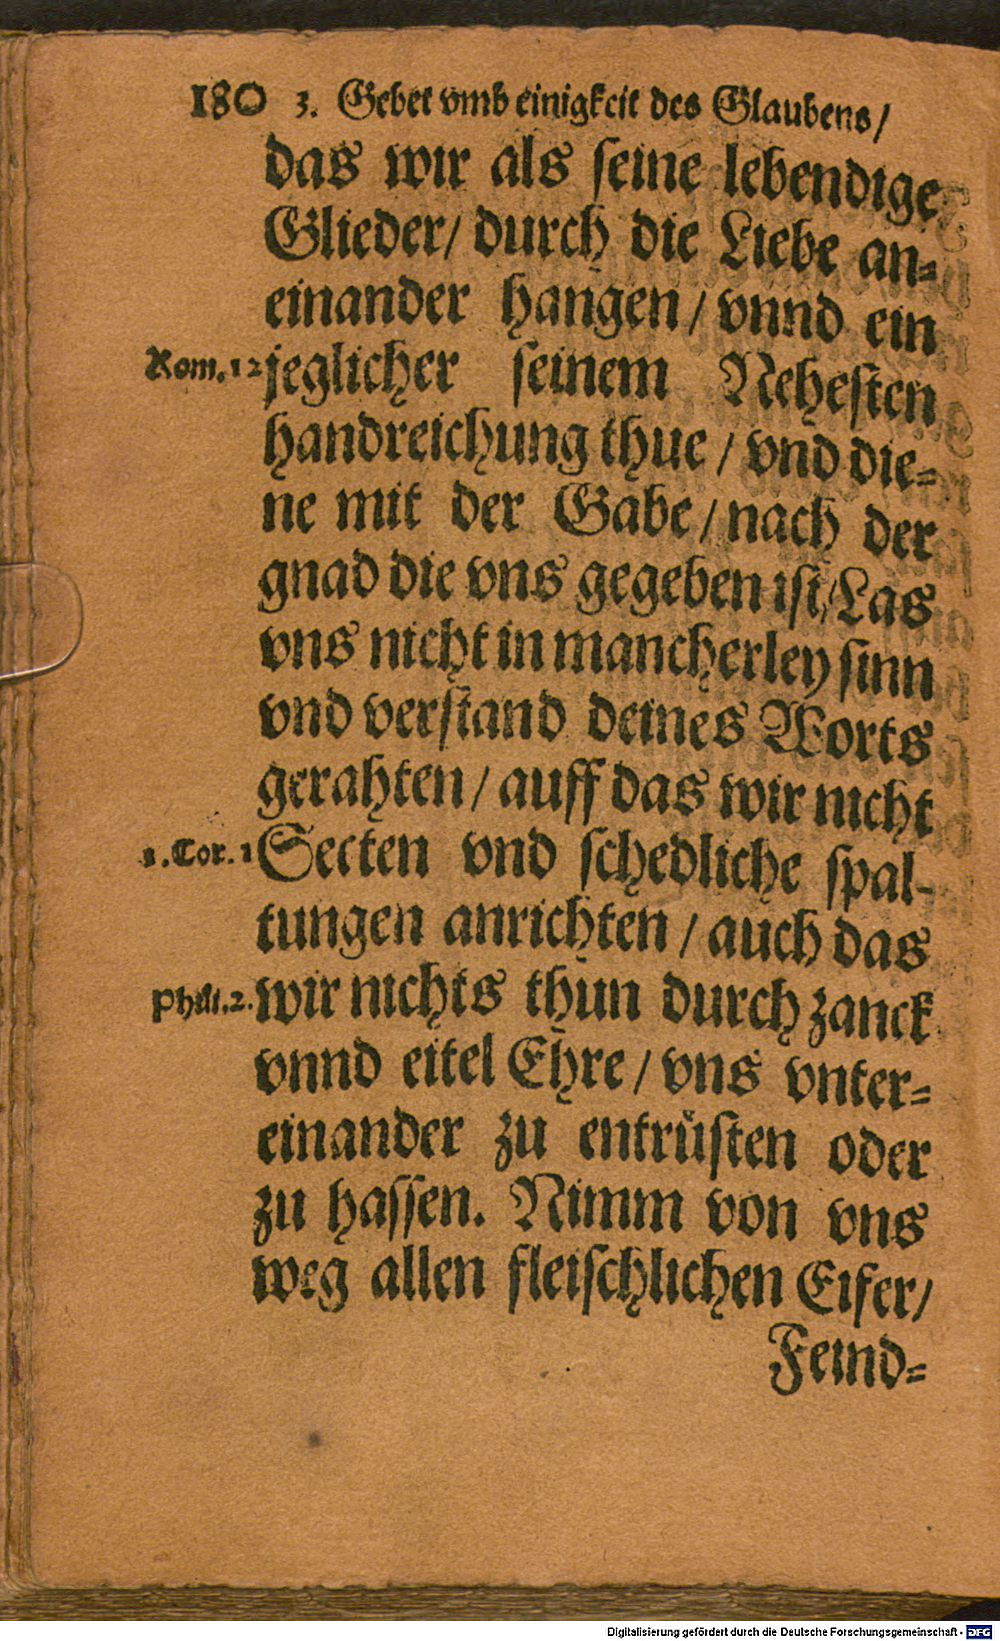 180 3. Gebet vmb einigkeit des Glaubens/
das wir als seine lebendige
Glieder/ durch die Liebe an-
einander hangen/ vnnd ein
Rom. 12 jeglicher seinem Nehesten
handreichung thue/ vnd die-
ne mit der Gabe/ nach der
gnad die vns gegeben ist/ Las
vns nicht in mancherley sinn
vnd verstand deines Worts
gerahten/ auff das wir nicht
1. Cor. 1 Secten vnd schedliche spal-
tungen anrichten/ auch das
Phili. 2. wir nichts thun durch zanck
vnnd eitel Ehre/ vns vnter-
einander zu entrüsten oder
zu hassen. Nimm von vns
weg allen fleischlichen Eifer/
Feind-
Digitalisierung gefördert durch die Deutsche Forschungsgemeinschaft - DFG